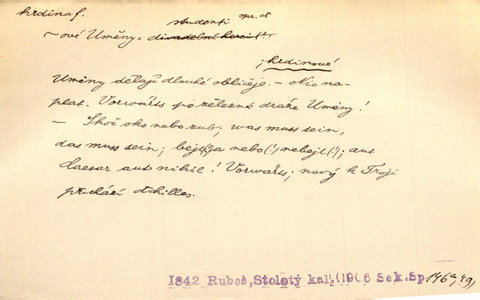 hrdina f.
studenti
-ové Umény = divadelní herci!
hrdinové
Umény dělají dlouhé obličeje. - Nic na-
plat. Vorwärts po zelezné dráze Umény!
- Skrč oko nebo zub, was muss sein,
das muss sein; bejt(!)a nebo(!) nebejt(!); aut
Caesar aut nihil! Vorwärts; nový k Troji
přichází Achilles.
1842 Rubeš, Stoletý kal. (1906 Sek.Sp. 146a, 49)